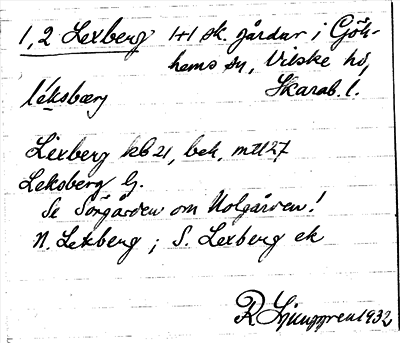 1,2 Lexberg 1+1 sk. gårdar i Gök-
hems sn, Vilske hd,
Skarab. l.
léksbærj
Lexberg kb 21, bek, mtl 27
Leksberg G.
Se Sörgården om Nolgården!
N. Lexberg ; S. Lexberg ek
R Ljunggren 1932